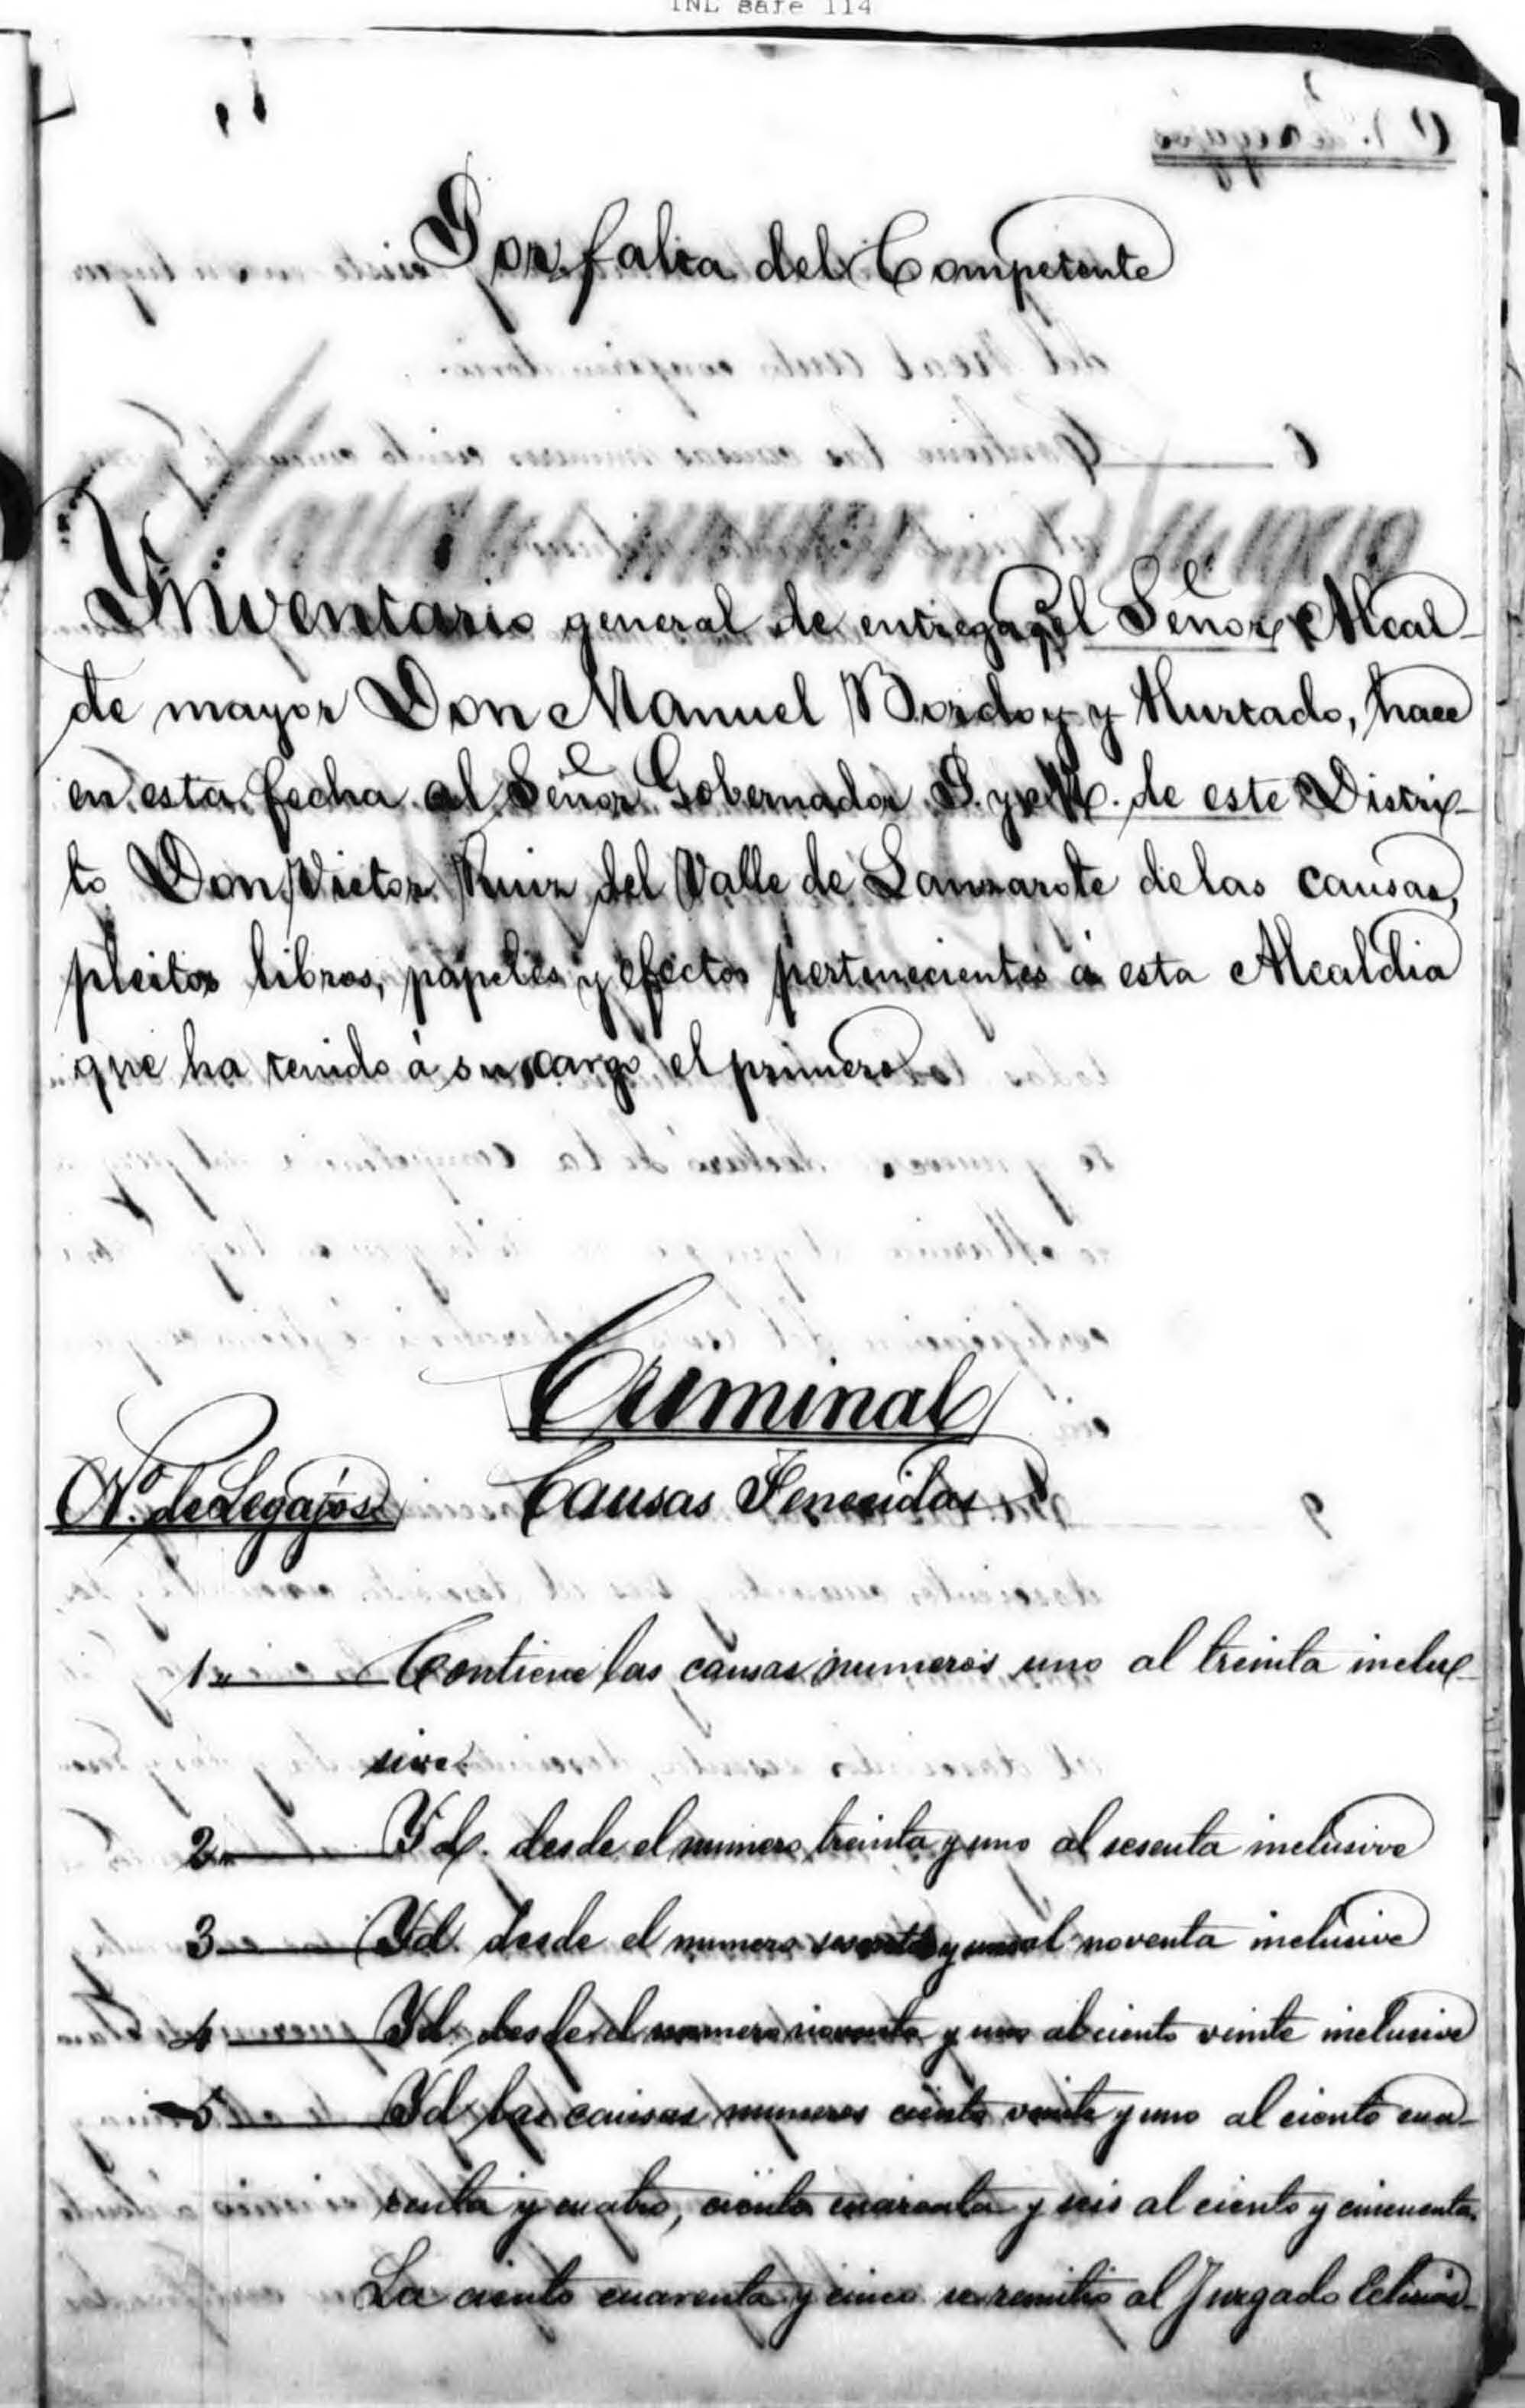 TNL safe 114
Por falta del Competente
Ynventario general de entrega qe el Señor Alcal-
de mayor Don Manuel Bordoy y Hurtado, hace
en esta fecha al Señor Gobernador P. y M. de este Distri-
to Don Victor Ruiz del Valle de Lanzarote de las causas,
pleitos libros, papeles y efectos pertenecientes á esta Alcaldia
que ha tenido á su cargo el primero
Criminal
No. de Legajos Causas Fenecidas
1 Contiene las causas numeros uno al treinta inclu-
sive.
2 Yd. desde el numero treinta y uno al sesenta inclusive
3 Yd. desde el numero sesenta y uno al noventa inclusive
4 Yd. desde el numero noventa y uno al ciento veinte inclusive
5 Yd las causas numeros ciento veinte y uno al ciento cua-
renta y cuatro, ciento cuarenta y seis al ciento y cincuenta.
La ciento cuarenta y cinco se remitió al Juzgado Eclesiás-